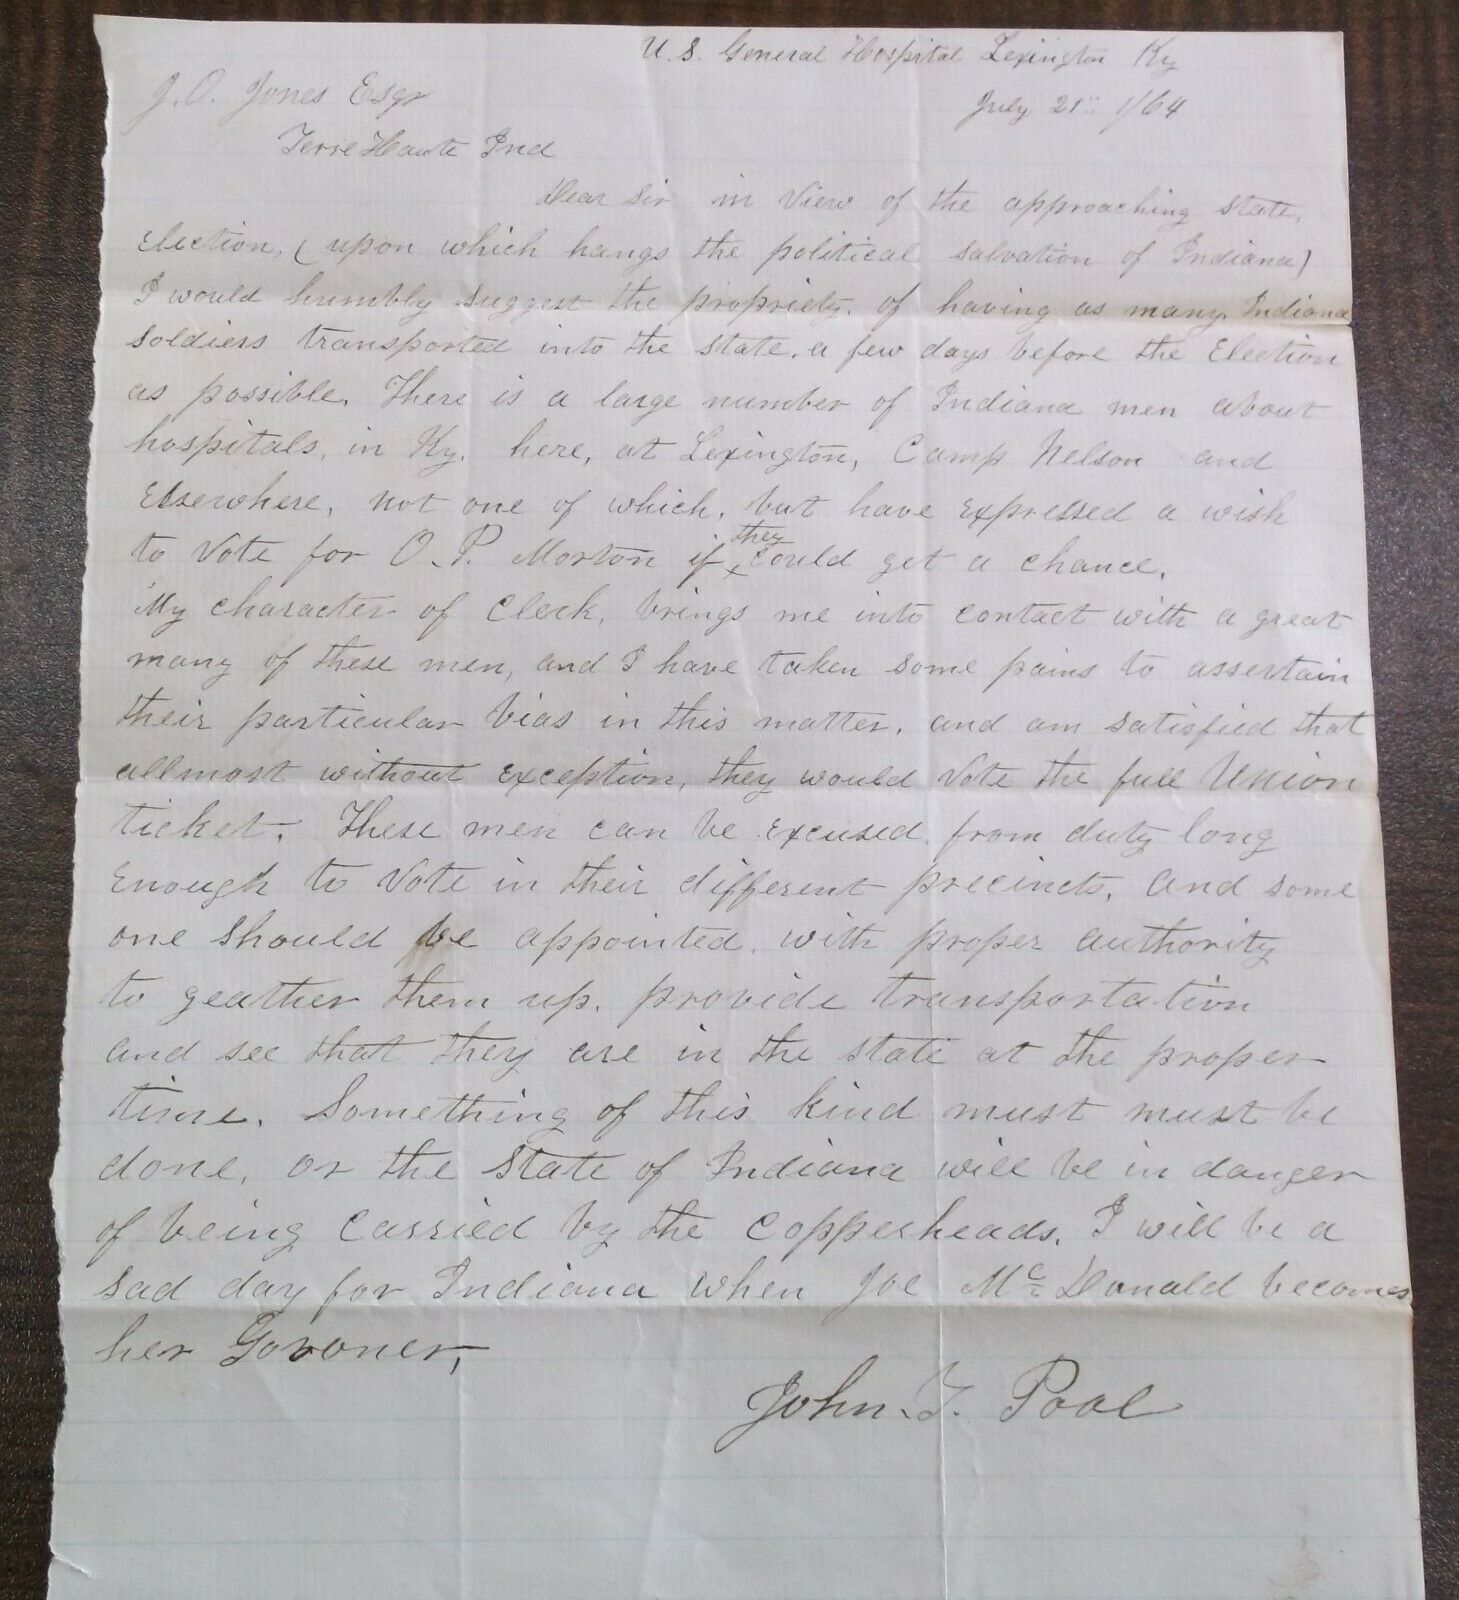 U.S. General Hospital Lexington Ky
J. O. Jones Esqr
July 21" 1/64
Terre Haute Ind
Dear Sir in View of the approaching State,
Election, (upon which hangs the political salvation of Indiana)
I would humbly suggest the propriety. of having as many. Indiana
soldiers transported into the state. a few days before the Election
as possible. There is a large number of Indiana men about
hospitals, in Ky. here, at Lexington, Camp Nelson and
Elsewhere, not one of which, but have expressed a wish
they
to Vote for O. P. Morton if x could get a chance.
My character of Clerk, brings me into contact with a great
many of these men, and I have taken some pains to assertain
their particular bias in this matter, and am satisfied that
allmost without exception, they would Vote the full Union
ticket. These men can be excused from duty long
Enough to Vote in their different precincts, and some
one should be appointed, with proper authority
to geather them up, provide transportation
and see that they are in the state at the proper
time. Something of this kind must must be
done, or the State of Indiana will be in danger
of being carried by the Copperheads. I will be a
sad day for Indiana when Joe Mc Donald becomes
her Govoner,
John. T. Pool